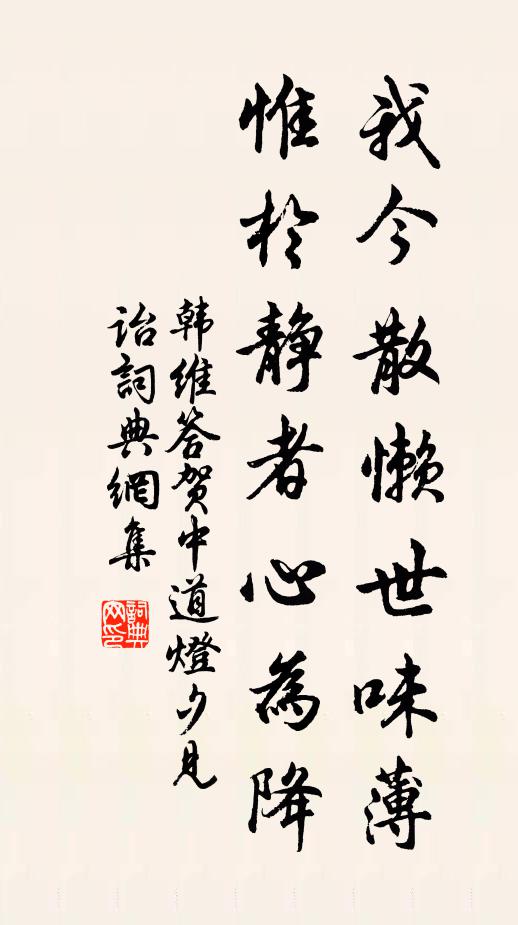 我今散懒世味薄
惟於静者心為降
韩维答贺中道燈夕見
詒詞典網集
詞典网印